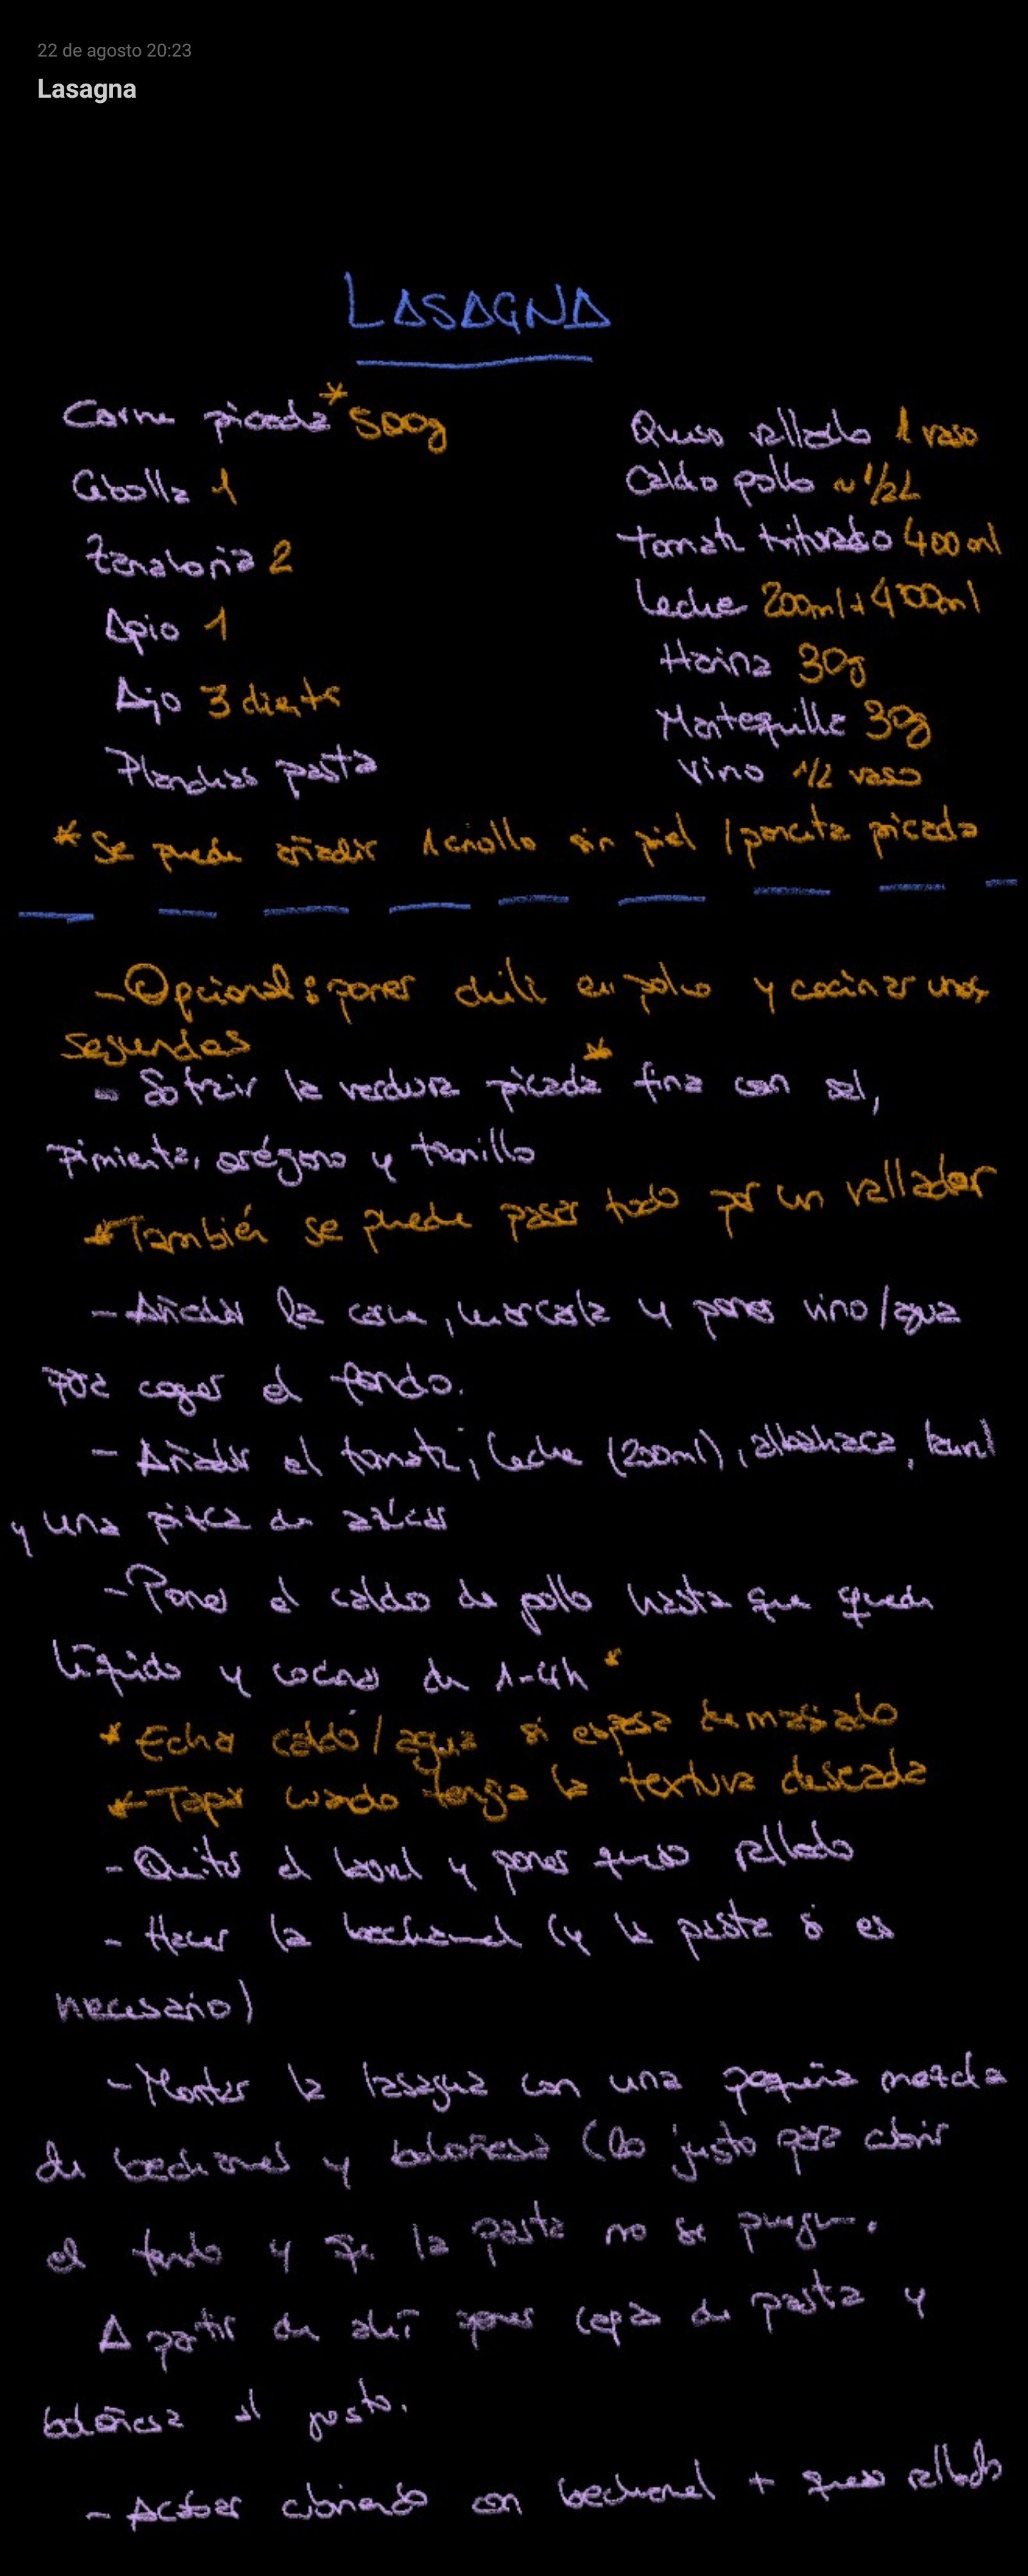 22 de agosto 20:23
Lasagna
LASAGNA
Carne picada* 500g
Cebolla 1
Zanahoria 2
Apio 1
Ajo 3 dientes
Planchas pasta
Queso rallado 1 vaso
Caldo pollo ~1/2L
Tomate triturado 400ml
Leche 200ml+400ml
Harina 30g
Mantequilla 30g
Vino 1/2 vaso
*Se puede añadir 1 criollo sin piel / panceta picada
- Opcional: poner chili en polvo y cocinar unos
segundos
- Sofreir la verdura picada* fina con sal,
pimienta, orégano y tomillo
*También se puede pasar todo por un rallador
- Añadir la carne, marcarla y poner vino/agua
para coger el fondo.
- Añadir el tomate, leche (200ml), albahaca, laurel
y una pizca de azúcar
- Poner el caldo de pollo hasta que quede
líquido y cocinar de 1-4h *
* Echar caldo/agua si espesa demasiado
* Tapar cuando tenga la textura deseada
- Quitar el laurel y poner queso rallado
- Hacer la bechamel (y la pasta si es
necesario)
- Montar la lasagna con una pequeña mezcla
de bechamel y boloñesa (lo justo para cubrir
el fondo y que la pasta no se pegue.
A partir de ahí poner capas de pasta y
boloñesa al gusto.
- Acabar cubriendo con bechamel + queso rallado